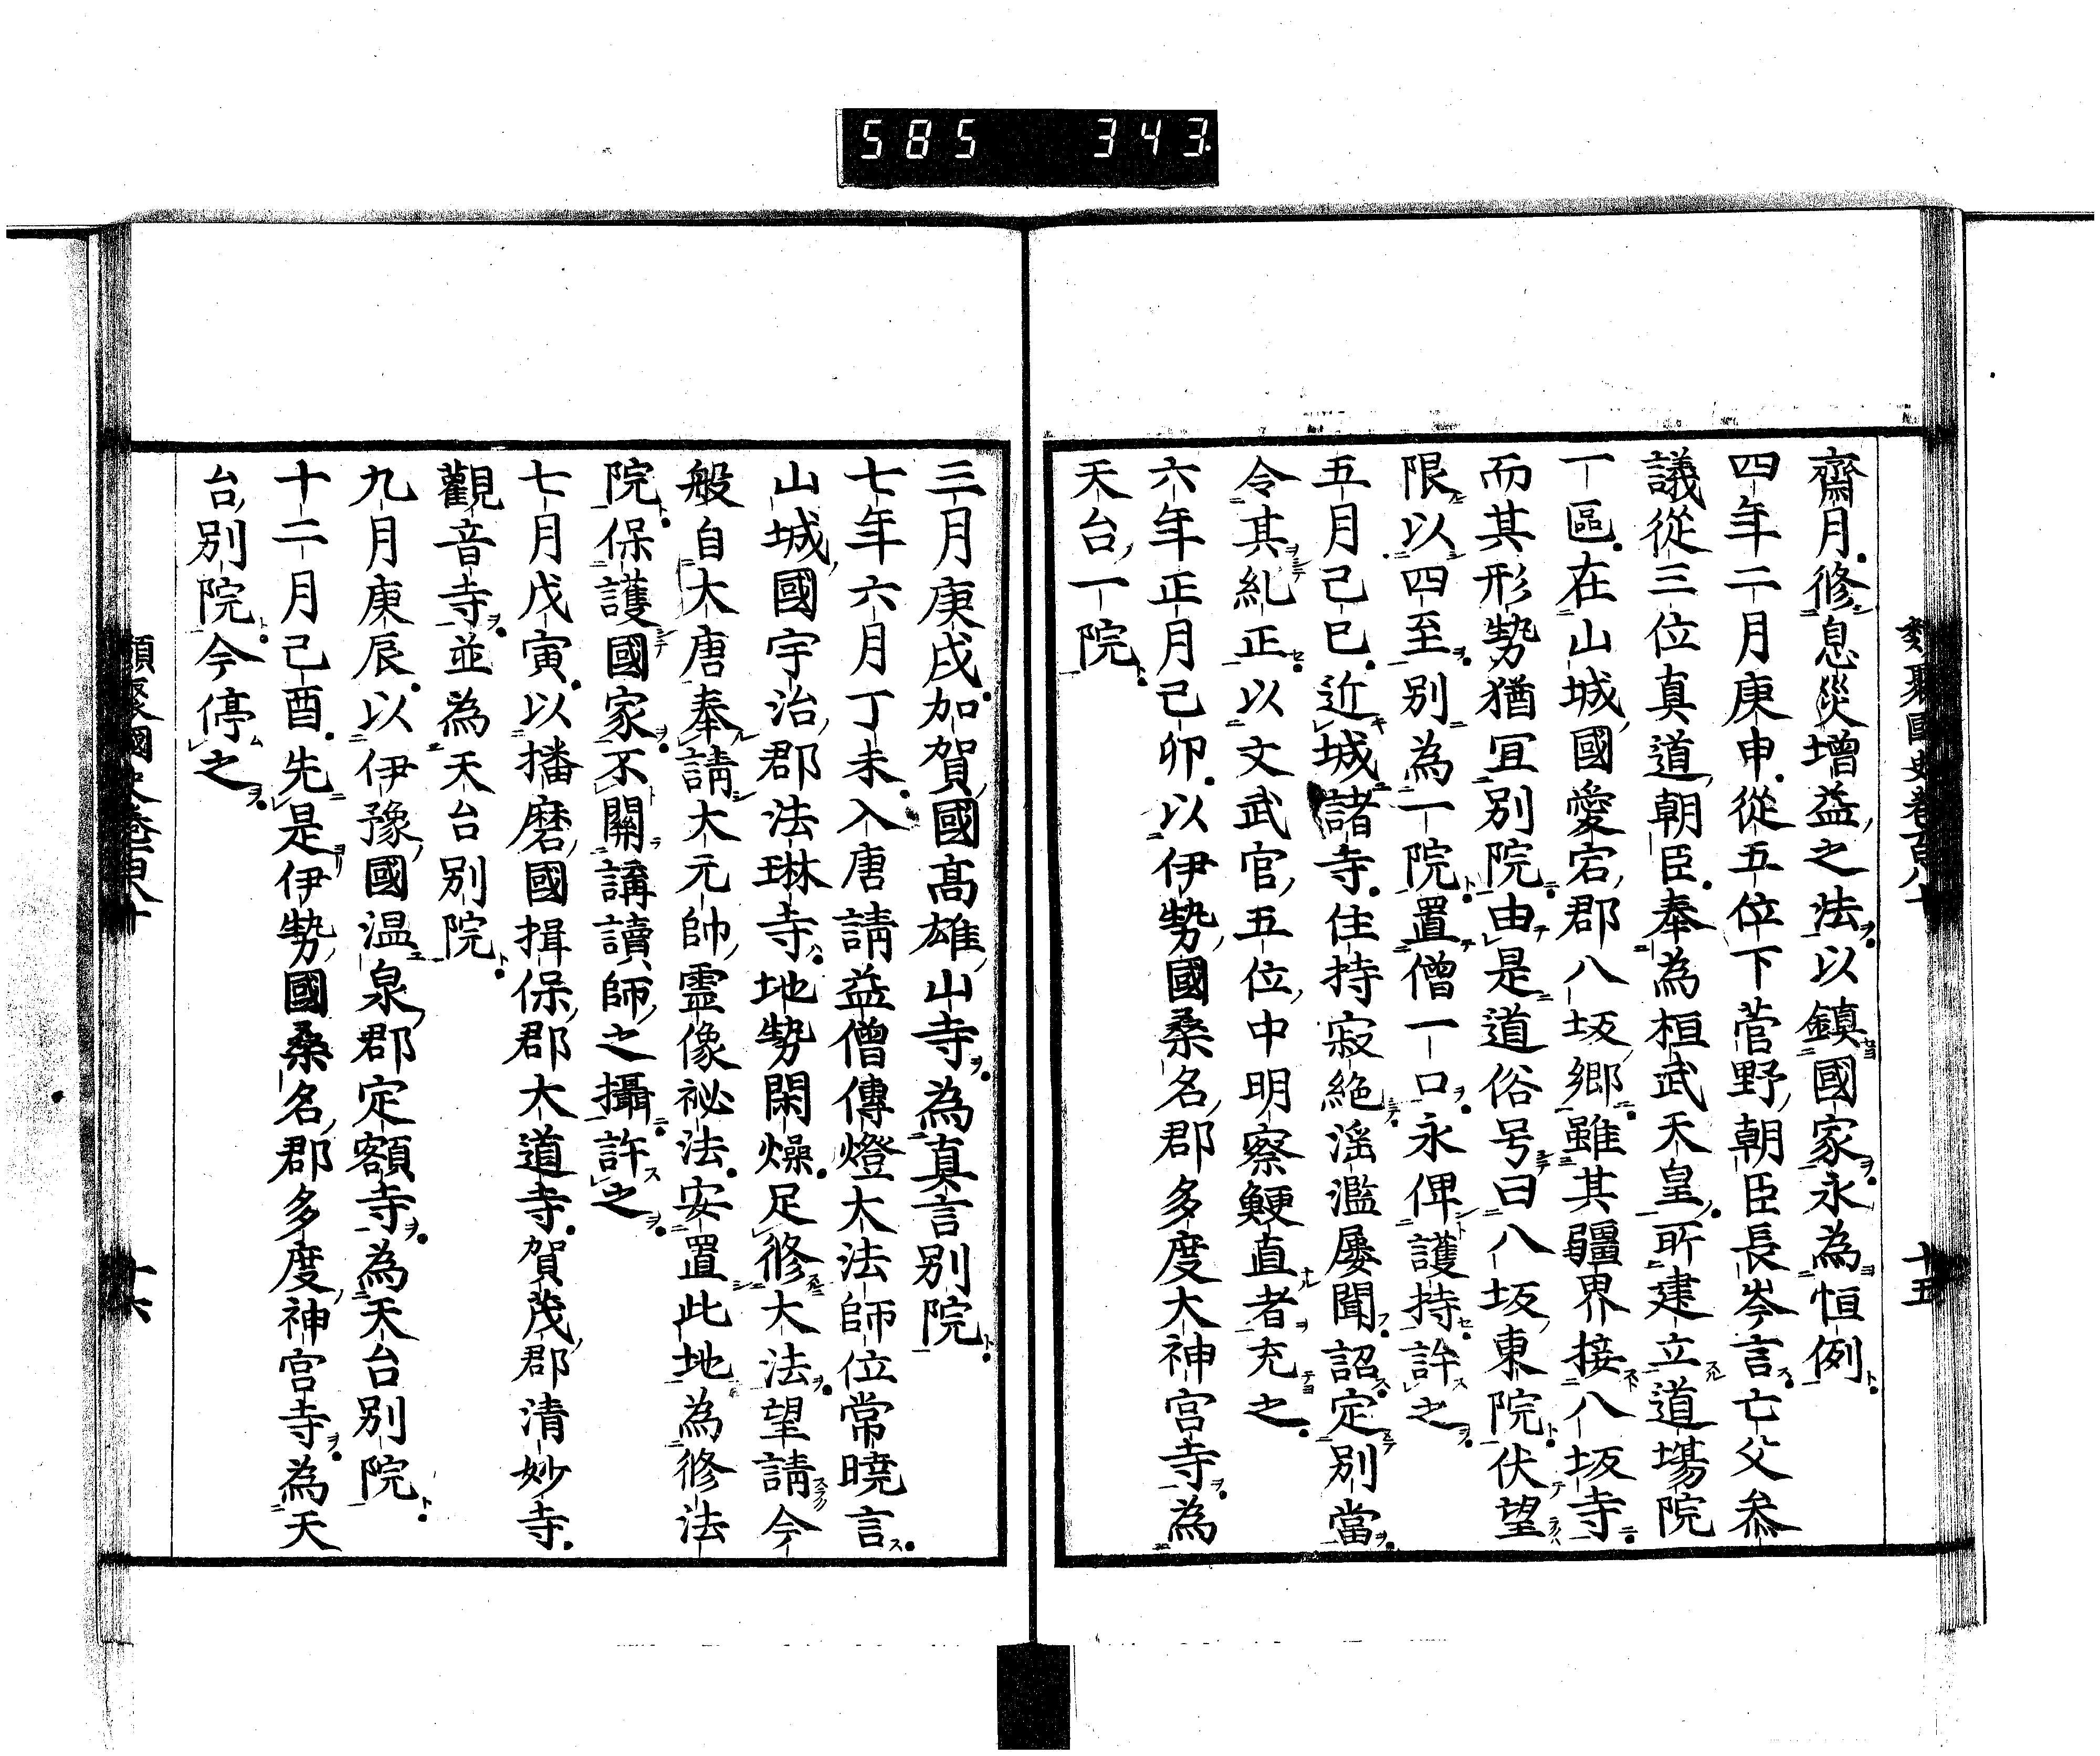 585 343.
類聚國史卷百八十 十五
齋月修息災增益之法以鎮國家永為恒例
四年二月庚申從五位下菅野朝臣長岑言亡父叅
議從三位真道朝臣奉為桓武天皇所建立道場院
一區在山城國愛宕郡八坂鄉雖其疆界接八坂寺
而其形勢猶冝別院由是道俗号曰八坂東院伏望
限以四至別為一院置僧一口永俾護持許之
五月己巳近城諸寺住持寂絶滛濫屢聞詔定別當
令其糺正以文武官五位中明察鯁直者充之
六年正月己卯以伊勢國桑名郡多度大神宮寺為
天台一院
三月庚戌加賀國髙雄山寺為真言別院
七年六月丁未入唐請益僧傳燈大法師位常曉言
山城國宇治郡法琳寺地勢閑燥足修大法望請今
般自大唐奉請大元帥靈像祕法安置此地為修法
院保護國家不關講讀師之攝許之
七月戊寅以播磨國揖保郡大道寺賀茂郡清妙寺
觀音寺並為天台別院
九月庚辰以伊豫國温泉郡定額寺為天台別院
十二月己酉先是伊勢國桑名郡多度神宮寺為天
台別院今停之
類聚國史卷百八十 十六